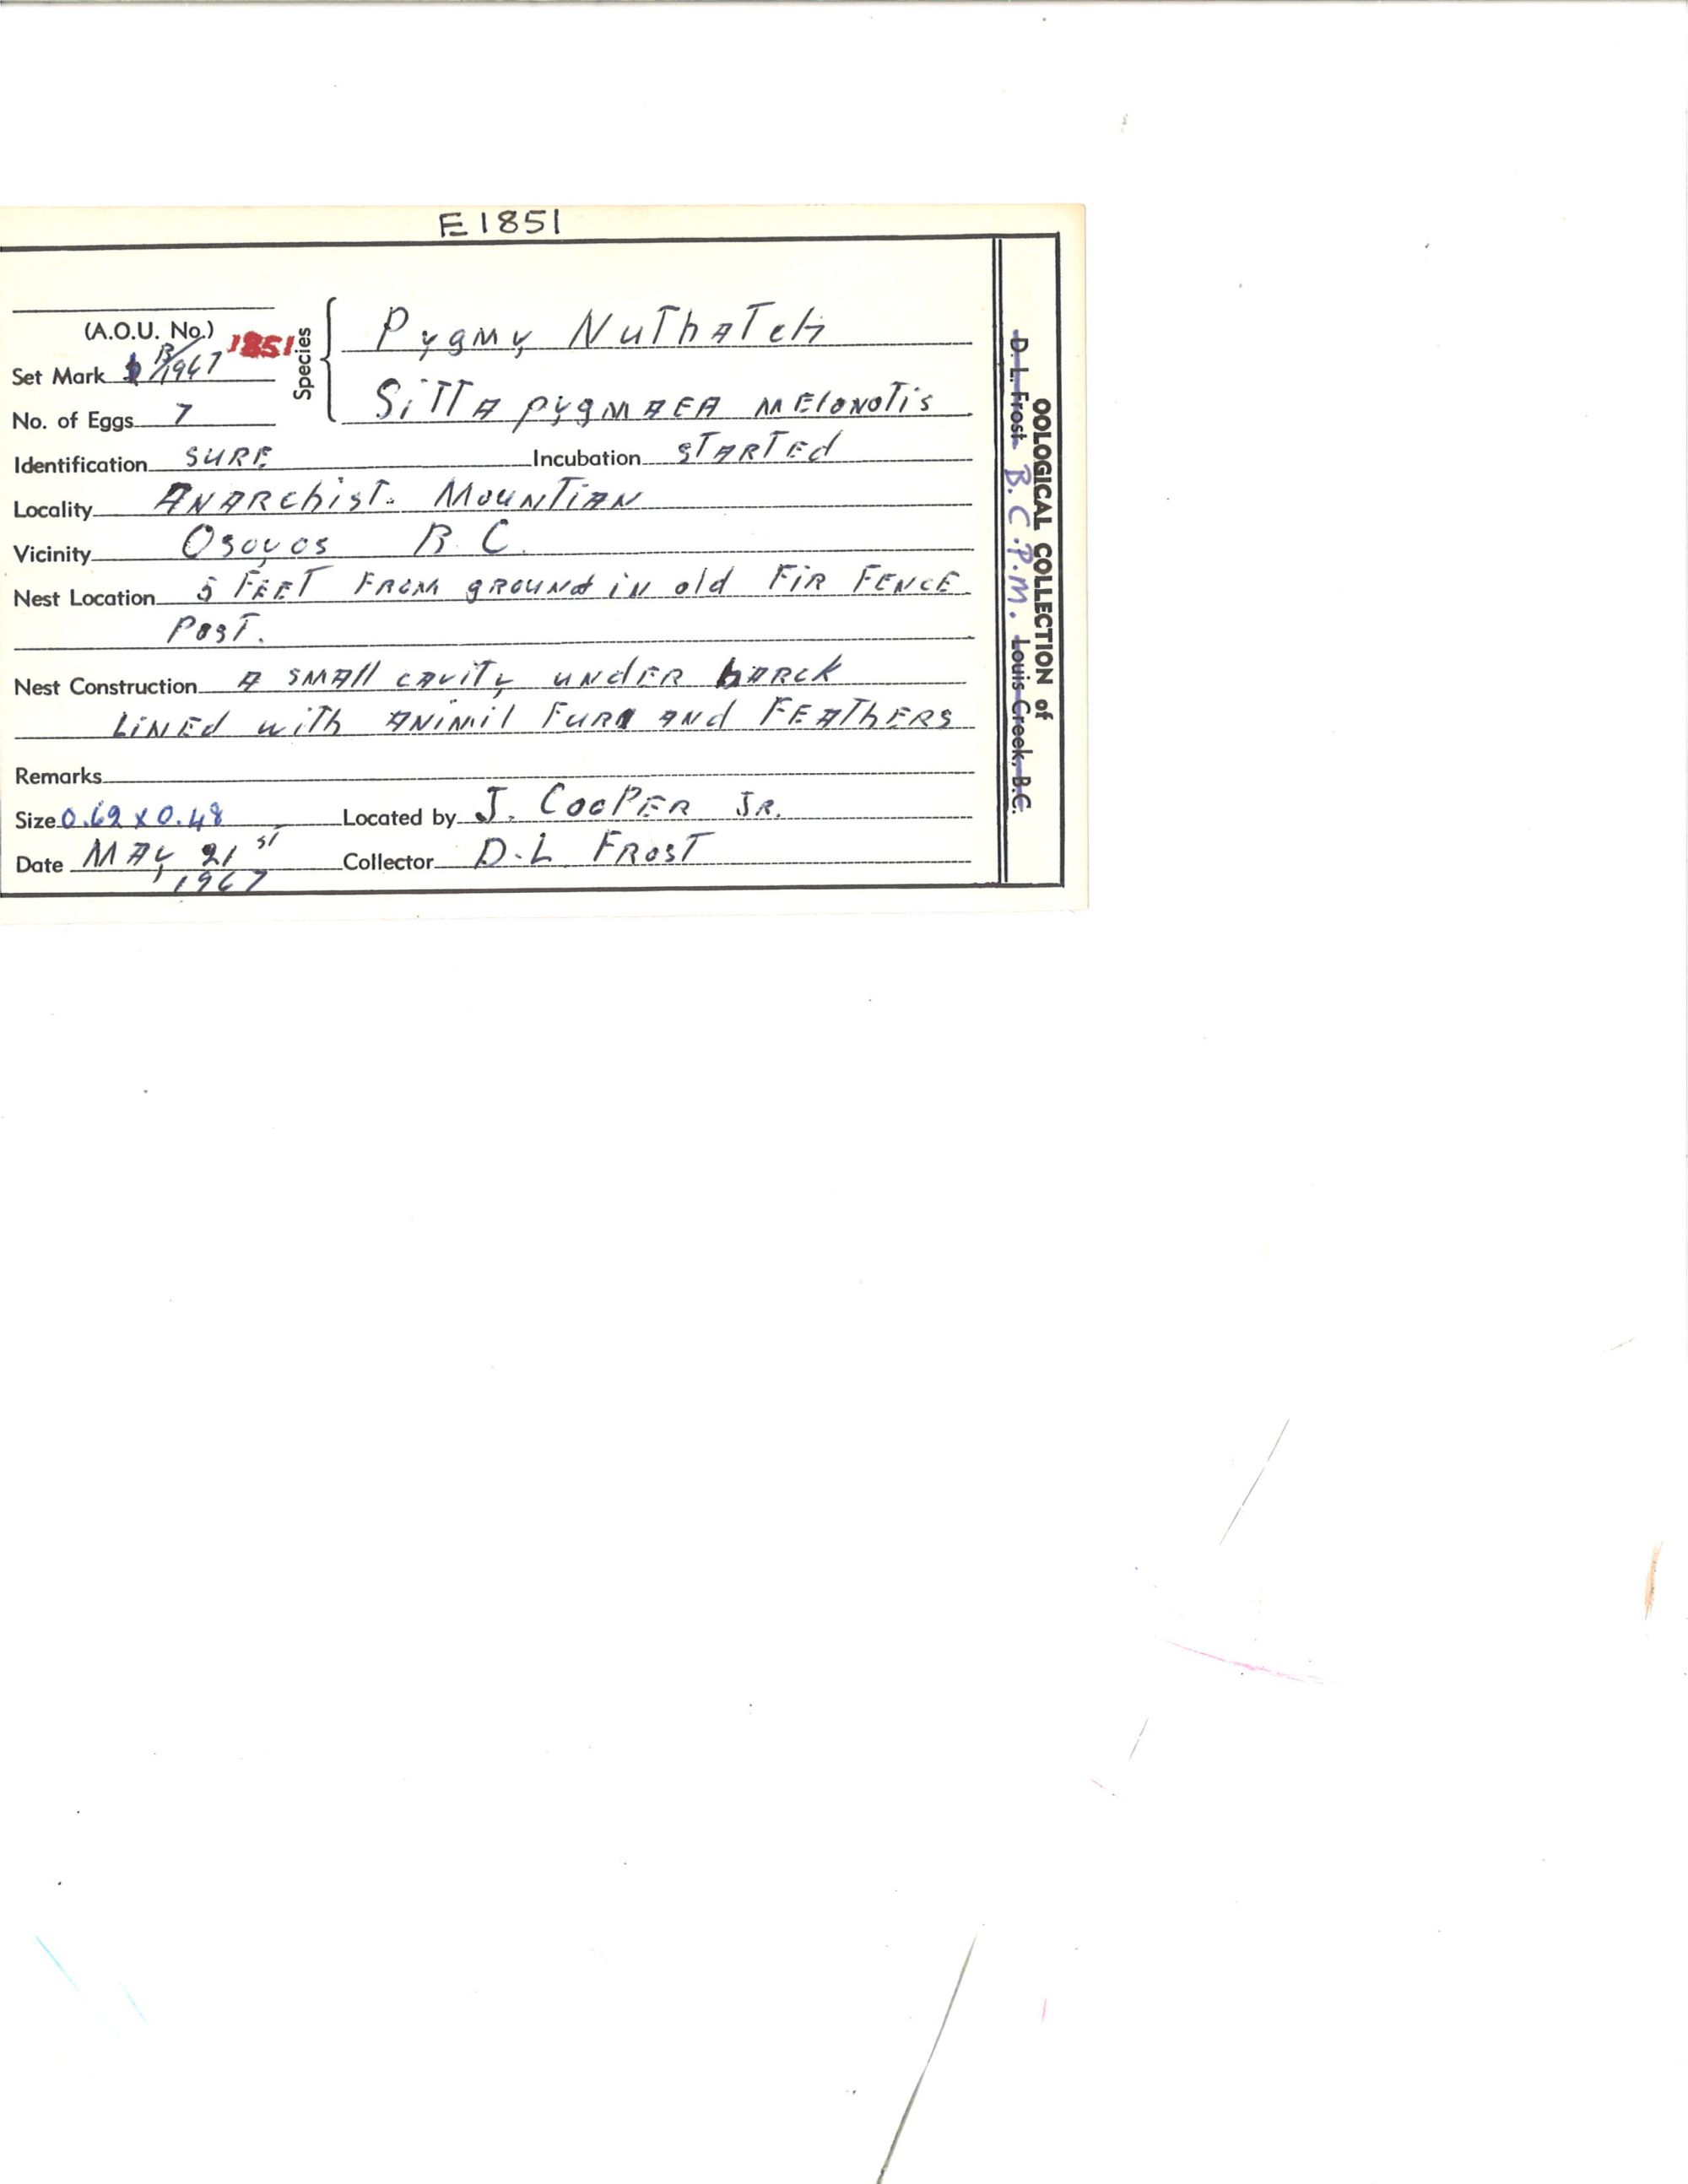 E1851
(A.O.U. No.) 1851
Species
Pygmy NuthATch
SiTTA pygmAEA MElonoTis
Set Mark B/1967
No. of Eggs 7
Identification SURE Incubation STARTEd
Locality ANARchisT. MounTiAN
Vicinity Osoyos B.C.
Nest Location 5 FEET FROM gROUNd iN old FiR FENCE
PosT.
Nest Construction A SMAll cAviTy uNdER bARCK
LiNEd wiTh ANiMil FuR ANd FEAThERS
Remarks
Size 0.69 x 0.48 Located by J. CooPER JR.
Date MAy 21 sT 1967 Collector D.L FROST
OOLOGICAL COLLECTION of
D. L. Frost B.C.P.M. Louis Creek, B.C.